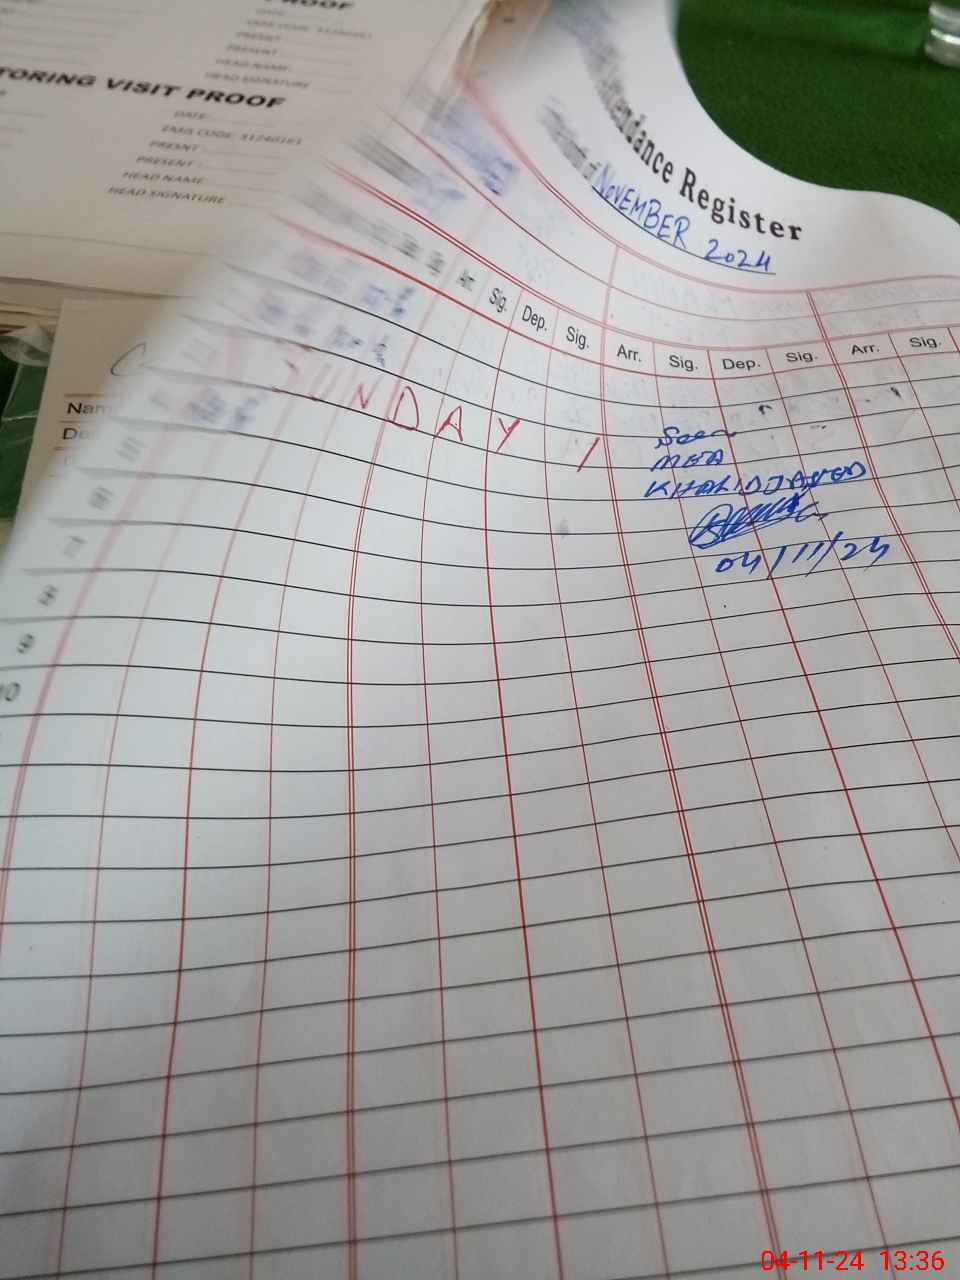 PROOF
DATE:
EMIS CODE: 31240161
PRESNT
PRESENT
HEAD NAME:
HEAD SIGNATURE
VISIT PROOF
DATE:
EMIS CODE: 31240161
PRESNT
PRESENT
HEAD NAME:
HEAD SIGNATURE
Attendance Register
of NOVEMBER 2024
Arr. Sig. Dep. Sig. Arr. Sig. Dep. Sig. Arr. Sig.
SUNDAY /
Seen
MEA
KHALID JAVED
04/11/24
6
7
8
9
10
04-11-24 13:36